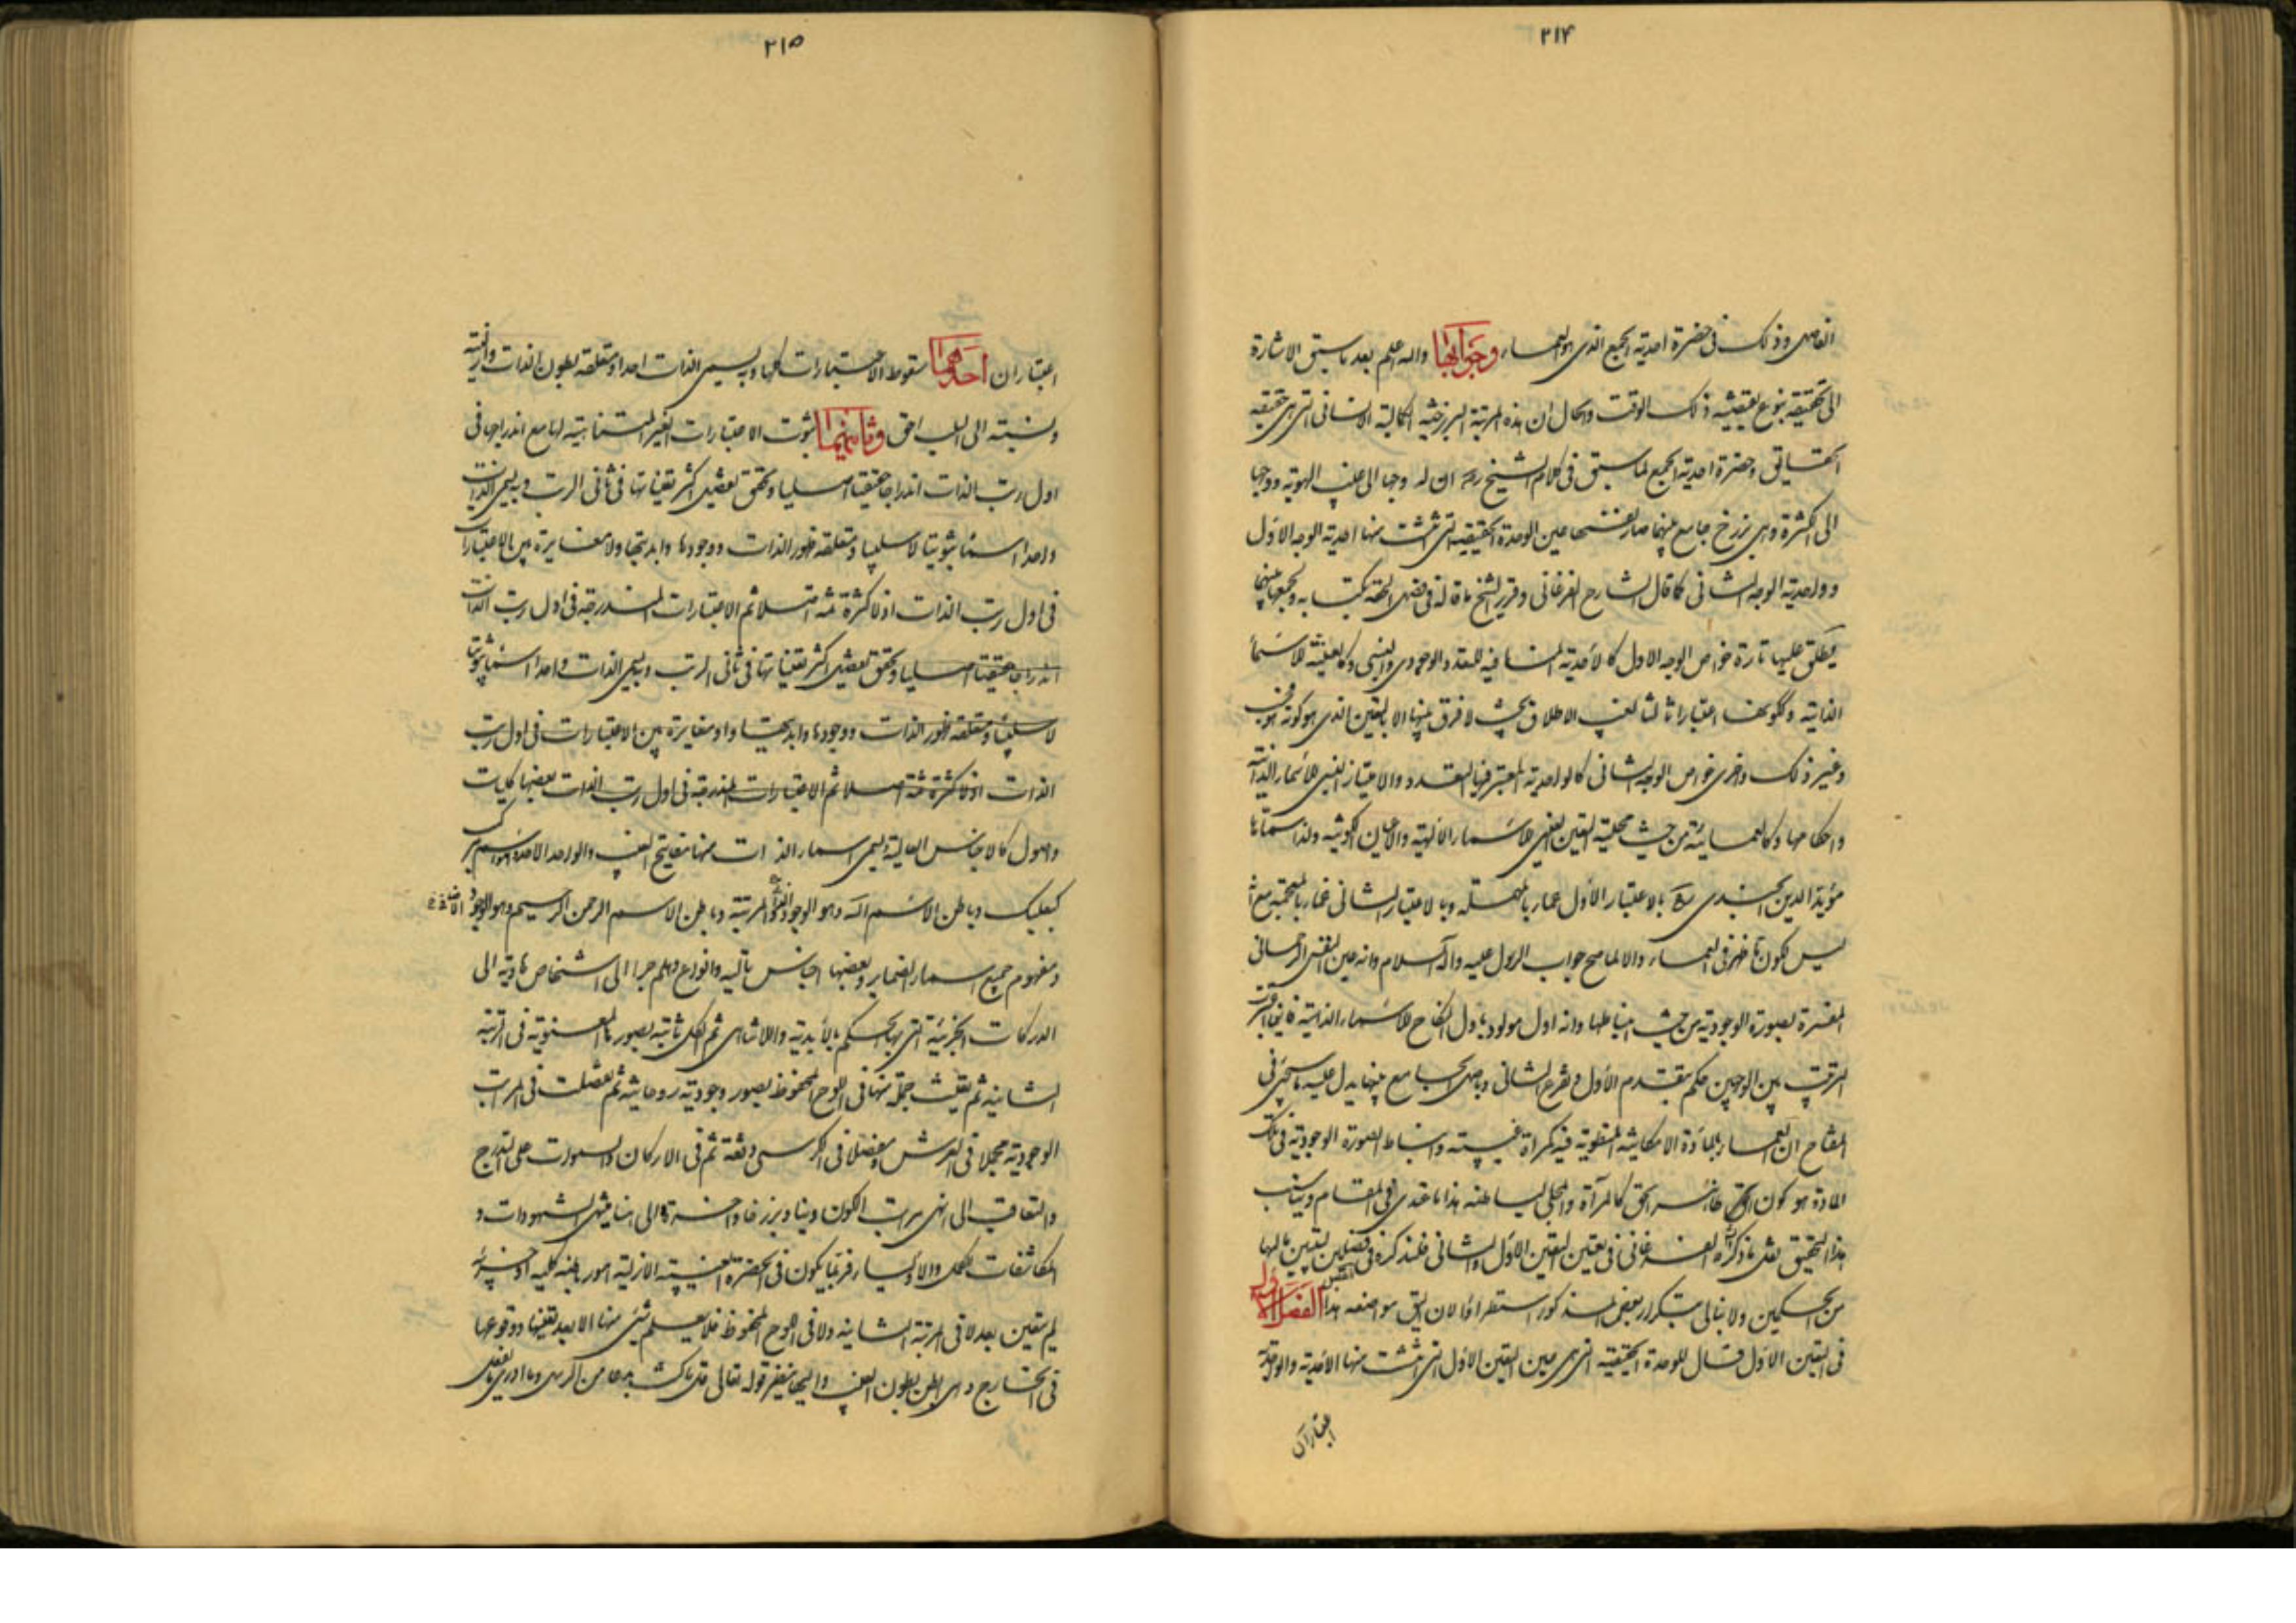 ٢١۴
الفاصل وذلك فى حضرة احدية الجمع الذى هو العماء وجوابها والله اعلم بعد ما سبق الاشارة
الى تحقيقه بنوع يقتضيه ذلك الوقت والحال ان هذه المرتبة البرزخية الكمالية الانسانى التى هى حقيقة
الحقايق وحضرة احدية الجمع لما سبق فى كلام الشيخ ره ان له وجها الى غيب الهوية ووجها
الى الكثرة وهى برزخ جامع بينهما صار عين الوحدة الحقيقية التى انتشت منها احدية الوجه الاول
وواحدية الوجه الثانى كما قال الشارح الفرغانى وقرير الشيخ ما قاله فى به ولجمعها بينهما
يطلق عليها تارة خواص الوجه الاول كالاحدية المنافية للتعدد الوجودى والنسبى وكالغيبية للاسماء
الذاتية وككونها اعتبارا ثالثا لغيب الاطلاق بحيث لا فرق بينهما الا بالتعين الذى هو كونه هو
وغير ذلك واخرى خواص الوجه الثانى كالواحدية المعتبر فيها التعدد والامتياز النسبى للاسماء الذاتية
واحكامها وكالعمائية من حيث محلية التعين الغيبى للاسماء الالهية والاعيان الكونية ولذا سماها
مؤيد الدين الجندى ره بالاعتبار الاول عماء بالمهملة وبالاعتبار الثانى غماء بالمعجمة مع
ليس لكون ما ظهر فى العماء والا لما صح جواب الرسول عليه وآله السلام وانه عين النفس الرحمانى
المفسرة بصورة الوجودية من حيث انبساطها وانه اول مولود باول النكاح للاسماء الذاتية
الترتيب بين الوجهين حكم بتقدم الاول وتفرع الثانى وباصل الجامع بينهما يدل عليه ما سيجئ فى
المفتاح ان العماء بالمادة الامكانية المنطوية فيه كمرآة غيبية وانبساط الصورة الوجودية فى تلك
المادة هو كون ظاهر الحق كالمرآة والمجلى لباطنه هذا ما عندى فى المقام ويناسب
هذا التحقيق نقل ما ذكره الفرغانى فى تعين التعين الاول والثانى فلنذكره فى فصلين لتعيين ما لهما
من الحكمين ولا نبالى بتكرار بعض المذكور استطرادا لان اليق مواضعه هذا الفصل الاول
فى التعين الاول قال للوحدة الحقيقية التى هى عين التعين الاول التى انتشت منها الاحدية والواحدية
اعتباران
٢١٥
اعتباران احدهما سقوط الاعتبارات كلها وبه يسمى الذات احدا ومتعلقه بطون الذات وازليته
ونسبته الى السلب احق وثانيهما ثبوت الاعتبارات الغير المتناهية لها مع اندراجها فى
اول رتب الذات اندراجا حقيقيا اصليا وتحقق تفصيل اكثر تعيناتها فى ثانى الرتب وبه يسمى الذات
واحدا اسما ثبوتيا لا سلبيا ومتعلقه ظهور الذات ووجودها وابديتها ولا مغايرة بين الاعتبارات
فى اول رتب الذات اذ لا كثرة ثمة اصلا ثم الاعتبارات المندرجة فى اول رتب الذات
اندراجا حقيقيا اصليا وتحقق تفصيل اكثر تعيناتها فى ثانى الرتب وبه يسمى الذات واحدا اسما ثبوتيا
لا سلبيا ومتعلقه ظهور الذات ووجودها وابديتها ولا مغايرة بين الاعتبارات فى اول رتب
الذات اذ لا كثرة ثمة اصلا ثم الاعتبارات المندرجة فى اول رتب الذات بعضها كليات
واصول كالاجناس العالية ويسمى اسماء الذات منها مفاتيح الغيب والواحد الاحد وهو اسم مركب
كبعلبك وباطن الاسم الله وهو الوجود المرتبة وباطن الاسم الرحمن الرحيم وهو الوجود
ومفهوم جميع اسماء الضماير وبعضها اجناس تالية وانواع وهلم جرا الى اشخاص هاوية الى
الدركات الجزئية التى بها الحكم بالابدية واللاتناهى ثم الكل ثابتة بصورها المعنوية فى المرتبة
الثانية ثم تعينت جملة منها فى اللوح المحفوظ بصور وجودية روحانية ثم تفصلت فى المراتب
الوجودية مجملا فى العرش ومفصلا فى الكرسى دفعة ثم فى الاركان والسموات على التدرج
والتعاقب الى انهى مراتب الكون دنيا وبرزخا وآخرة الى منتهى الشهودات و
المكاشفات للكمل والاولياء فربما يكون فى الحضرة الغيبية الازلية امور باطنة كلية او جزئية
لم يتعين بعد لا فى المرتبة الثانية ولا فى اللوح المحفوظ فلا يعلم شئ منها الا بعد تعينها ووقوعها
فى الخارج وهى ابطن بطون الغيب واليها ينظر قوله تعالى قل ما كنت بدعا من الرسل وما ادرى ما يفعل